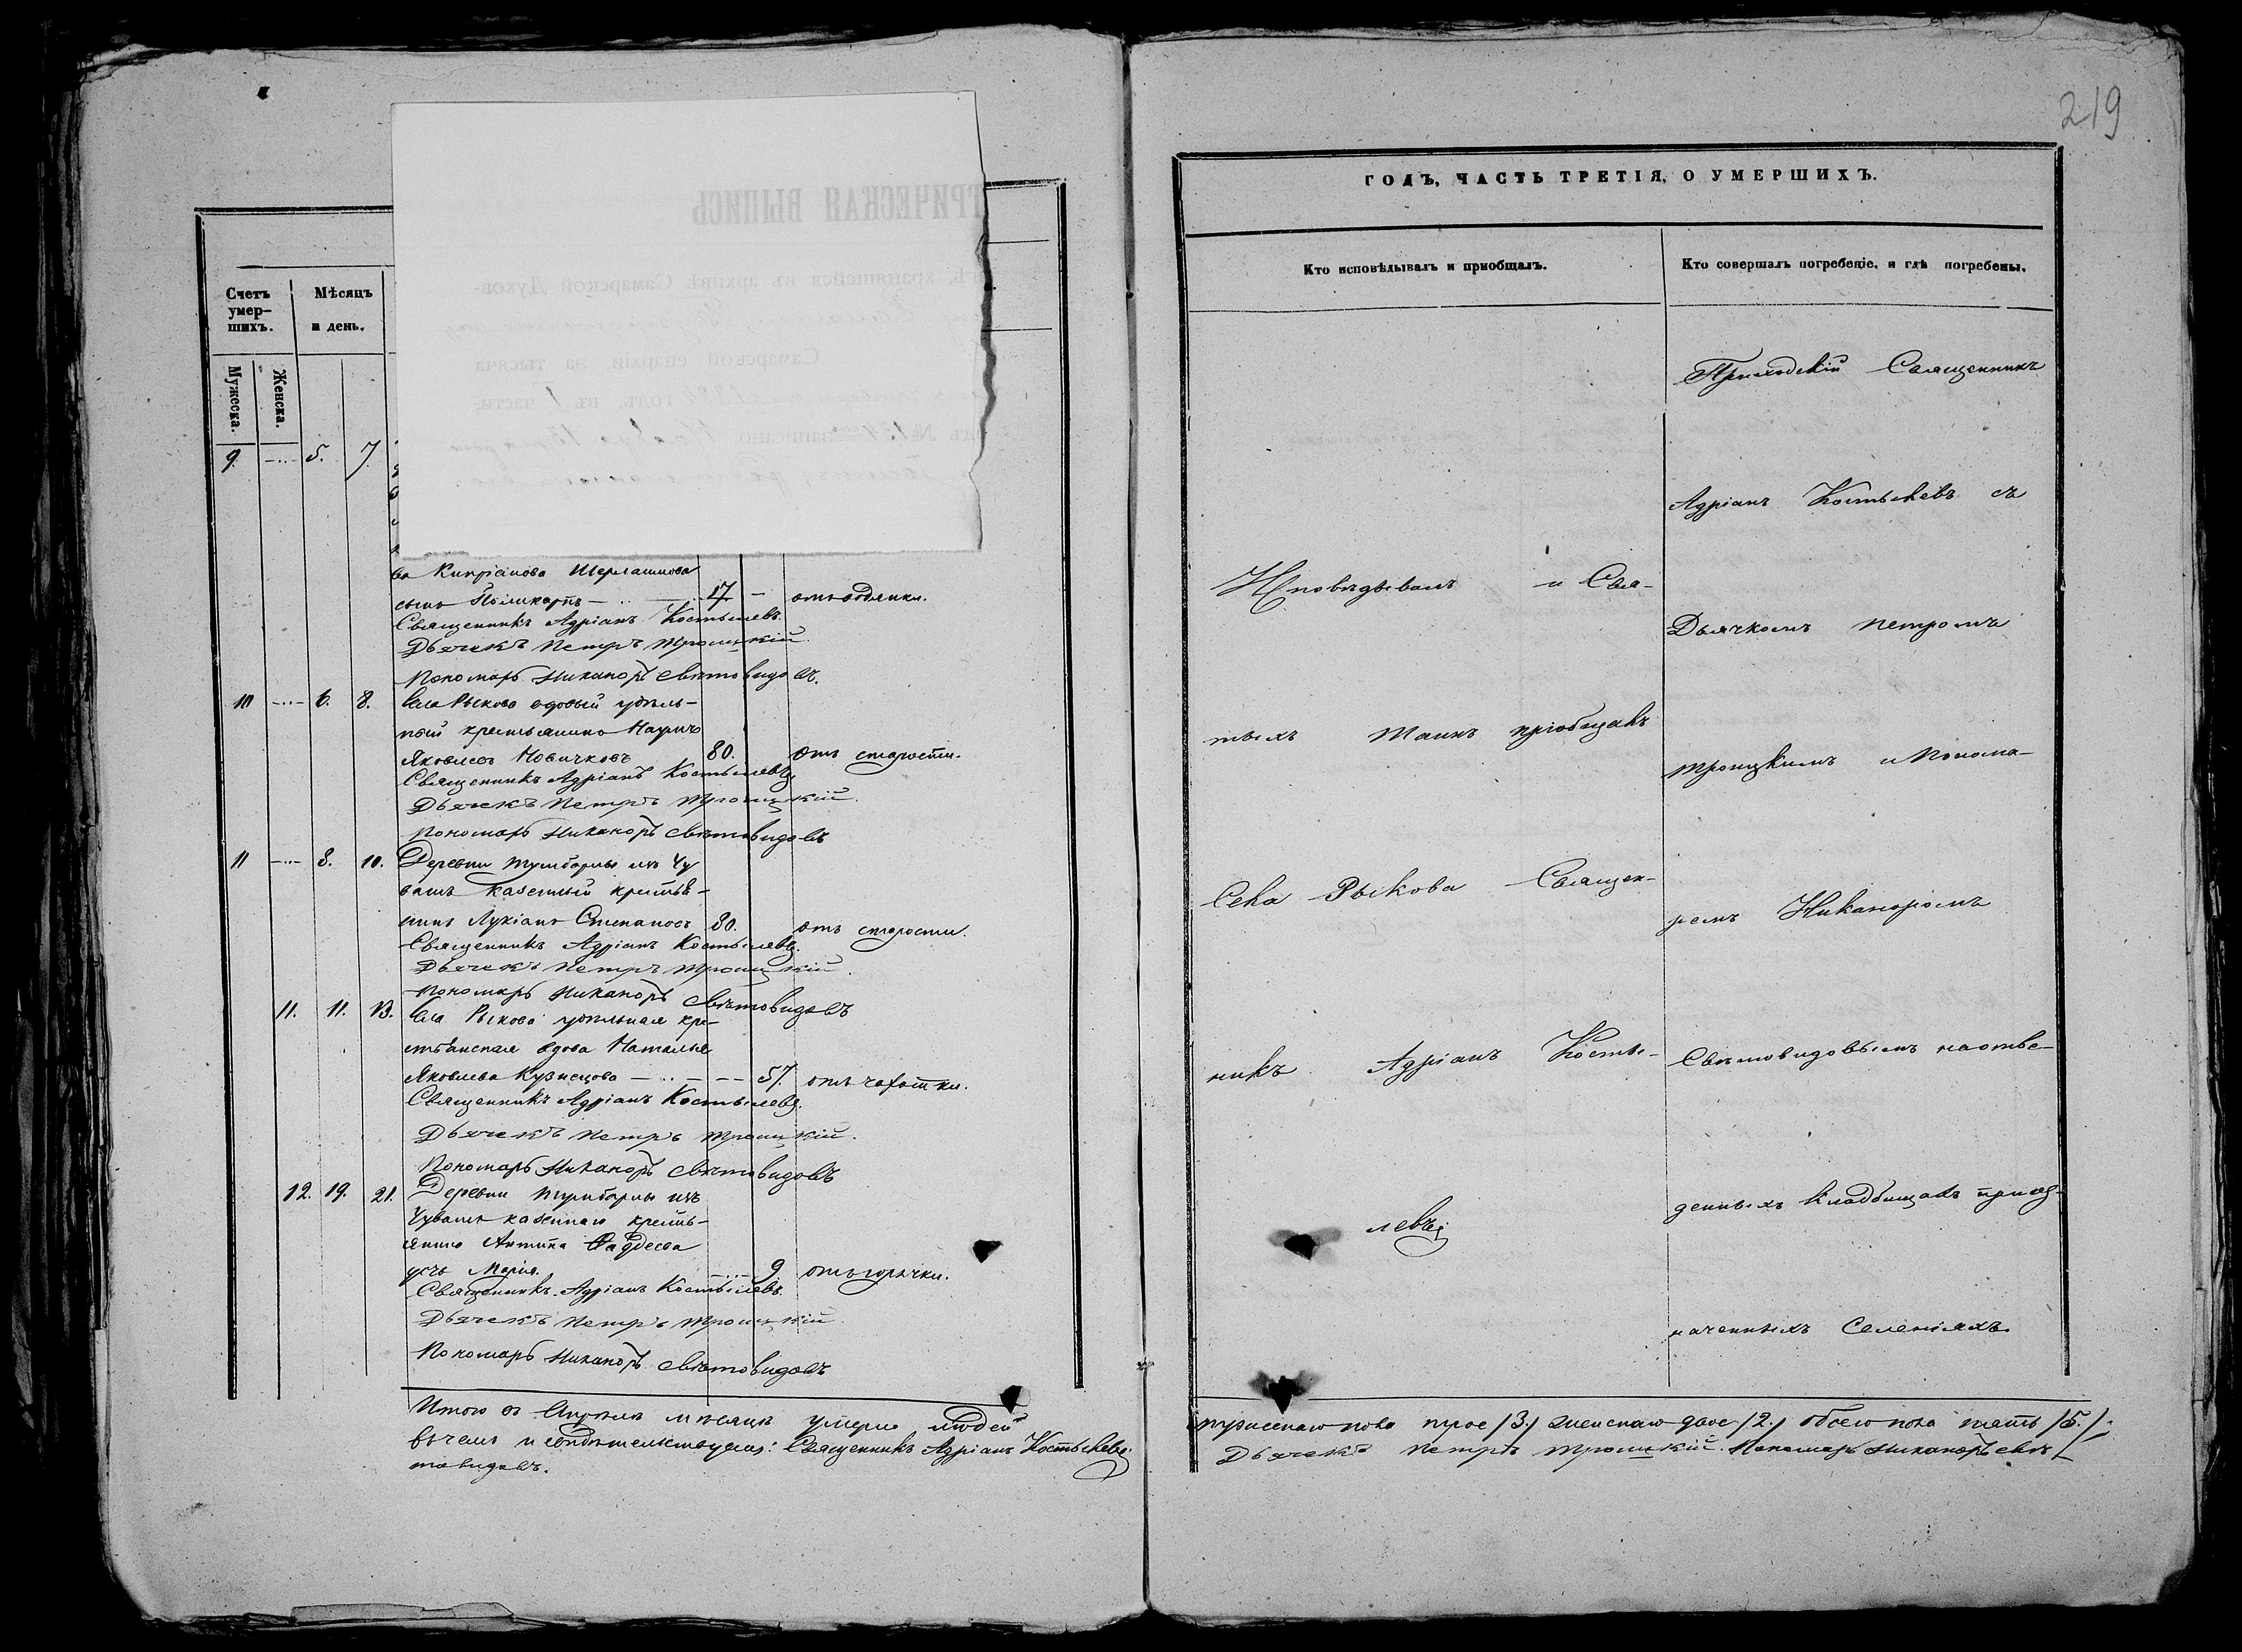 219
ТРИЧЕСКАЯ ВЫПИСЬ
хранящейся въ архивѣ Самарской Духов-
Самарской епархіи, за тысяча
годъ, въ 1 части,
№ записано:
Счетъ умер-
шихъ.
Мѣсяцъ
и день.
Мужеска.
Женска.
9. 5. 7.
ва Кипріанова Шерлашпова
сынъ Поликарпъ 17 отъ одышки.
Священникъ Адріанъ Костылевъ.
Дьячекъ Петръ Троицкій.
Пономарь Никаноръ Свѣтовидовъ.
10 6. 8. Села Рыкова вдовый удѣль-
ный крестьянинъ Наумъ
Яковлевъ Новичковъ 80. отъ старости.
Священникъ Адріанъ Костылевъ
Дьячекъ Петръ Троицкій.
Пономарь Никаноръ Свѣтовидовъ
11 8. 10. Деревни изъ Чу
вашъ казенный крестья-
нинъ Лукіанъ Степановъ 80. отъ старости.
Священникъ Адріанъ Костылевъ.
Дьячекъ Петръ Троицкій.
Пономарь Никаноръ Свѣтовидовъ
11. 11. 13. Села Рыкова удѣльная кре-
стьянская вдова Наталья
Яковлева Кузнецова 57. отъ чахотки.
Священникъ Адріанъ Костылевъ.
Дьячекъ Петръ Троицкій.
Пономарь Никаноръ Свѣтовидовъ
12. 19. 21. Деревни изъ
Чувашъ казеннаго кресть-
янина Антипа Фаддеева
дочь Марія. 9 отъ горячки.
Священникъ Адріанъ Костылевъ.
Дьячекъ Петръ Троицкій
Пономарь Никаноръ Свѣтовидовъ
Итого въ Апрѣлѣ мѣсяцѣ умерло людей
въ чемъ и свидѣтельствуемъ: Священникъ Адріанъ Костылевъ.
товидовъ.
ГОДЪ, ЧАСТЬ ТРЕТІЯ, О УМЕРШИХЪ.
Кто исповѣдывалъ и пріобщалъ.
Кто совершалъ погребеніе, и гдѣ погребены.
Исповѣдывалъ и Свя-
тыхъ Таинъ пріобщалъ
Села Рыкова Священ-
никъ Адріанъ Косты-
левъ
Приходскій Священникъ
Адріанъ Костылевъ съ
Дьячкомъ Петромъ
Троицкимъ и Понома-
ремъ Никаноромъ
Свѣтовидовымъ на отве-
денныхъ кладбищахъ при оз-
наченныхъ Селеніяхъ.
мужескаго пола трое /3./ женскаго двое /2./ обоего пола пять /5./
Дьячекъ Петръ Троицкій. Пономарь Никаноръ Свѣ